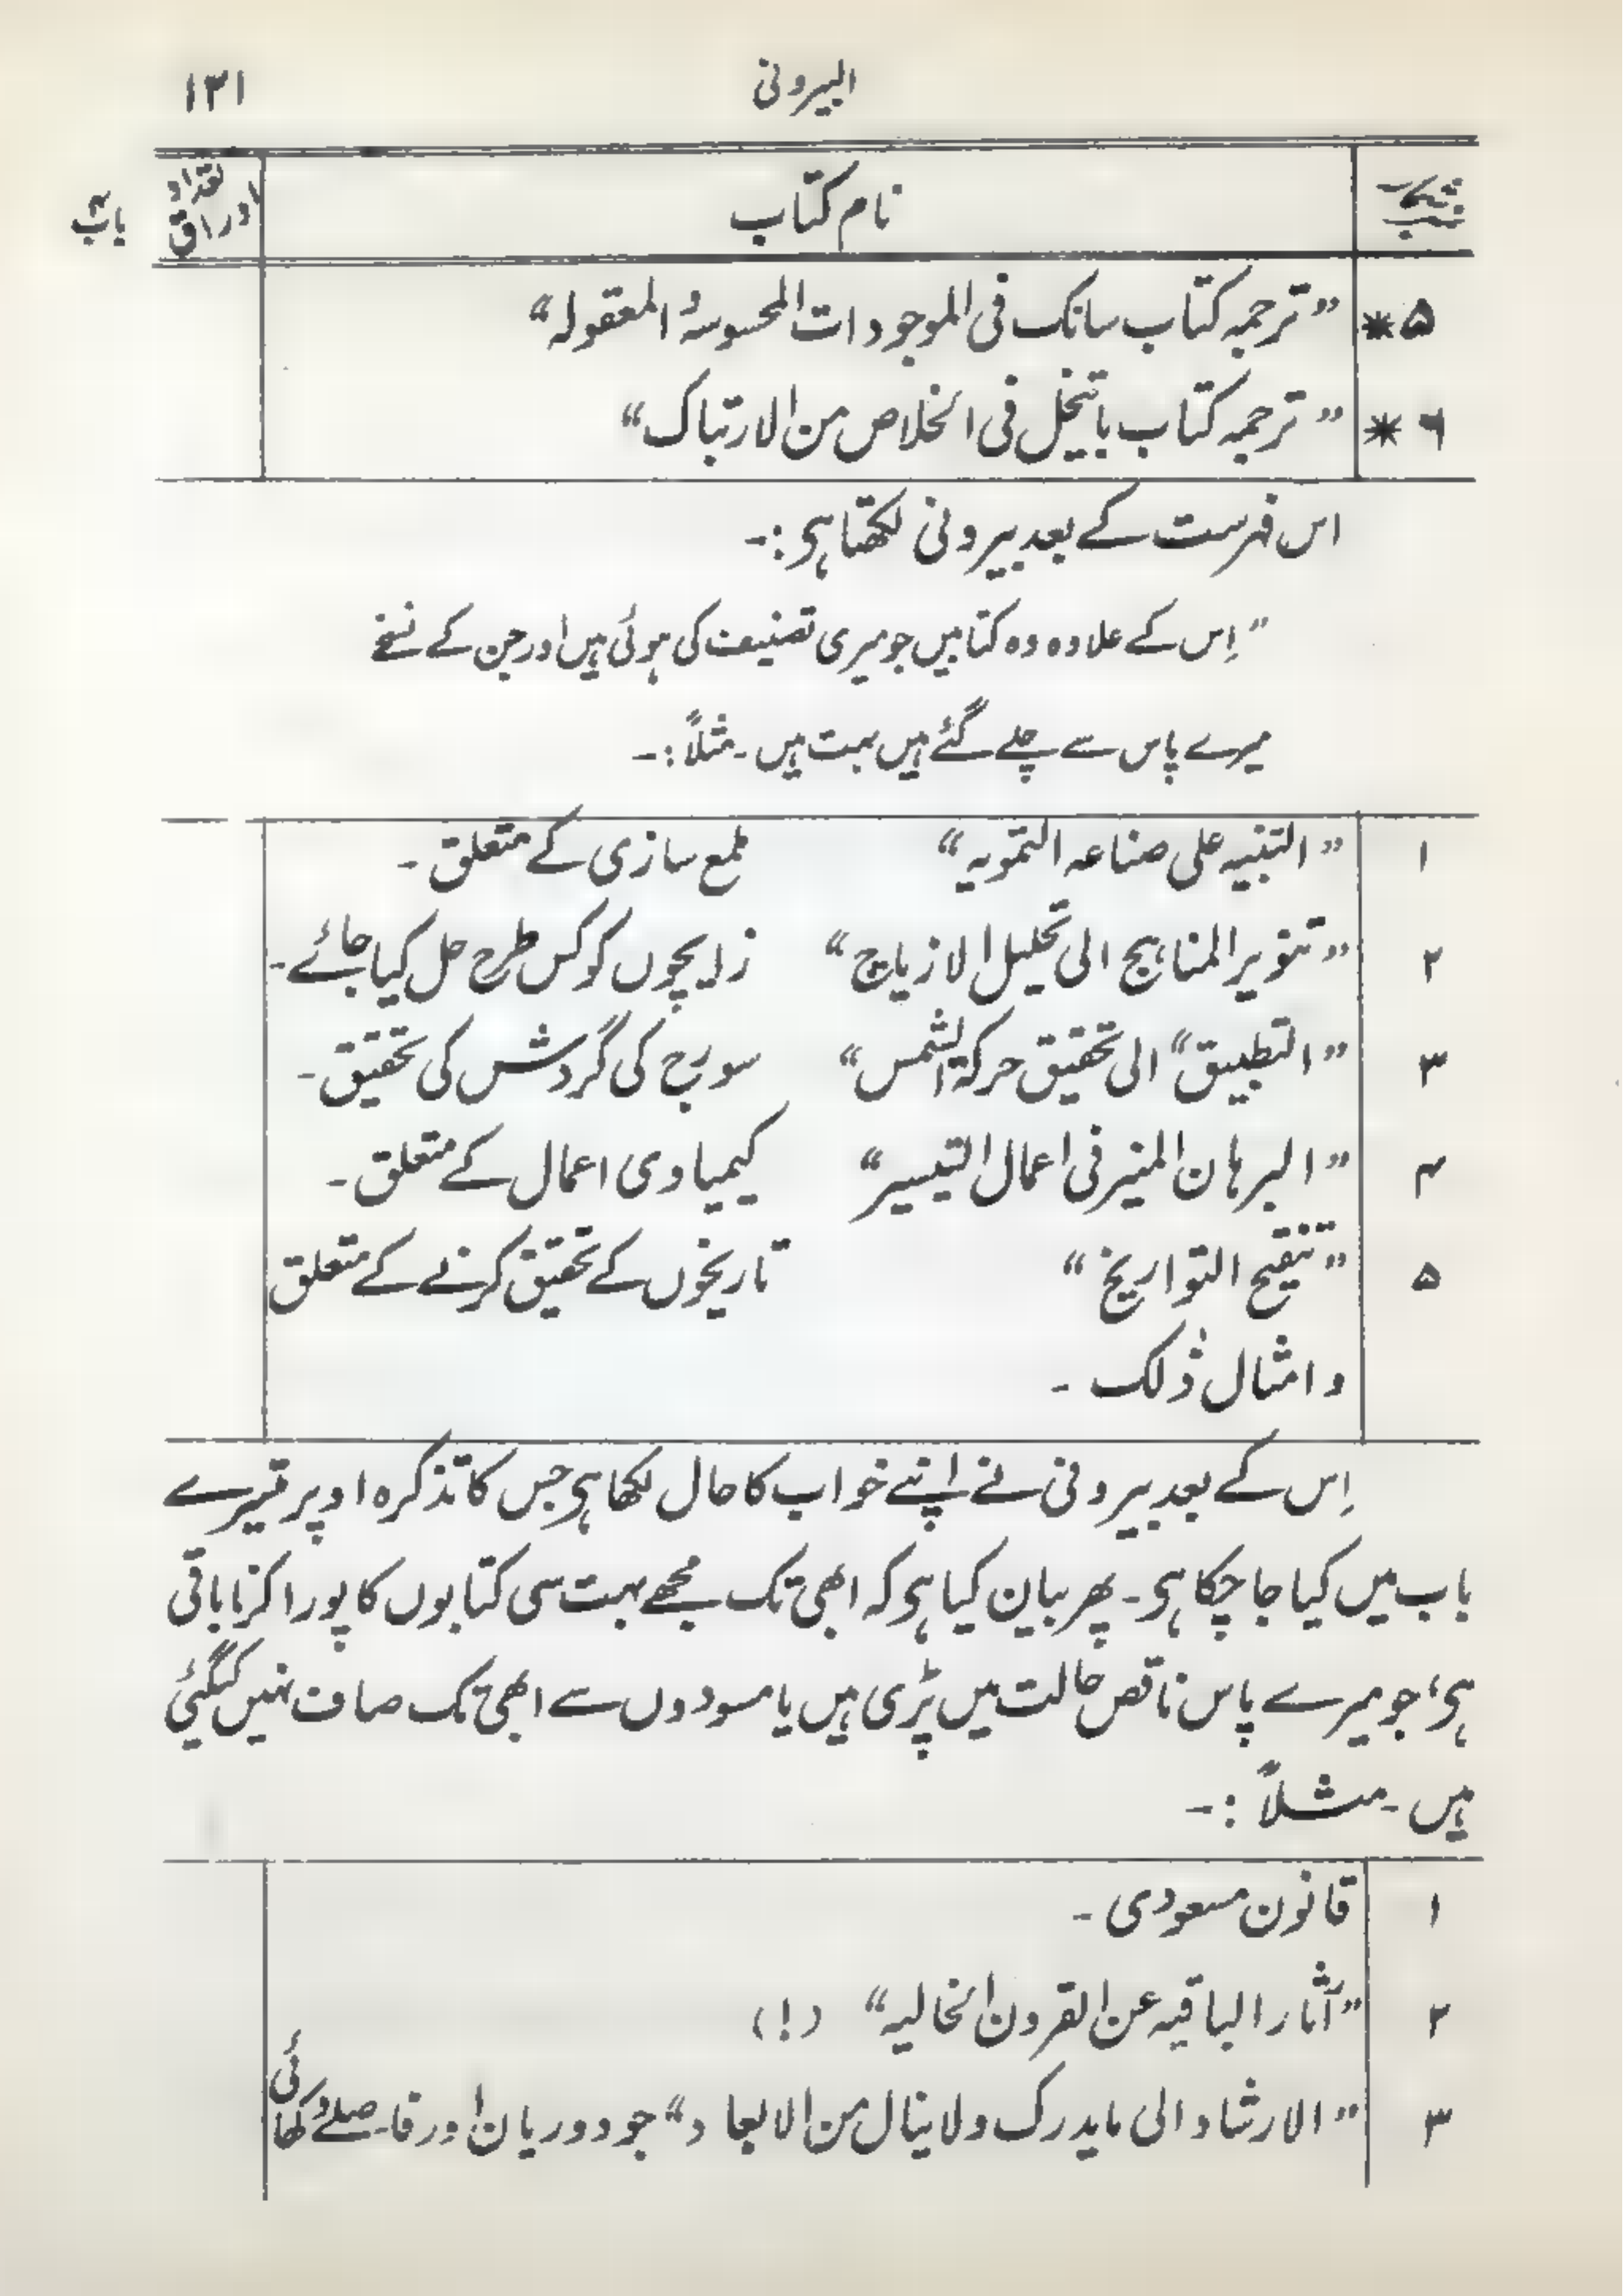 البیرونی ۱۳۱
نمبر شمار نام کتاب تعداد اوراق باب ۴
۵* ”ترجمہ کتاب سانک فی الموجودات المحسوسۃ المعقولہ“
۶* ”ترجمہ کتاب باتنجل فی الخلاص من الارتباک“
اس فہرست کے بعد بیرونی لکھتا ہی:-
”اِس کے علاوہ وہ کتابیں جو میری تصنیف کی ہوئی ہیں اور جن کے نسخے
میرے پاس سے چلے گئے ہیں بہت ہیں۔ مثلاً:-
۱ ”التنبیہ علی صناعہ التمویہ“ ملمع سازی کے متعلق۔
۲ ”تنویر المناہج الی تحلیل الازیاج“ زایچوں کو کس طرح حل کیا جائے۔
۳ ”التطبیق“ الی تحقیق حرکۃ الشمس“ سورج کی گردش کی تحقیق۔
۴ ”البرہان المنیر فی اعمال التیسیر“ کیمیاوی اعمال کے متعلق۔
۵ ”تنقیح التواریخ“ تاریخوں کے تحقیق کرنے کے متعلق
و امثال ذٰلک۔
اِس کے بعد بیرونی نے اپنے خواب کا حال لکھا ہی جس کا تذکرہ اوپر تیسرے
باب میں کیا جا چکا ہی۔ پھر بیان کیا ہی کہ ابھی تک مجھے بہت سی کتابوں کا پورا کرنا باقی
ہی، جو میرے پاس ناقص حالت میں پڑی ہیں یا مسودوں سے ابھی تک صاف نہیں کی گئی
ہیں۔ مثلاً:-
۱ قانون مسعودی۔
۲ ”آثار الباقیہ عن القرون الخالیہ“ (!)
۳ ”الارشاد الی مایدرک ولا ینال من الابعاد“ جو دوریاں اور فاصلے دکھائی